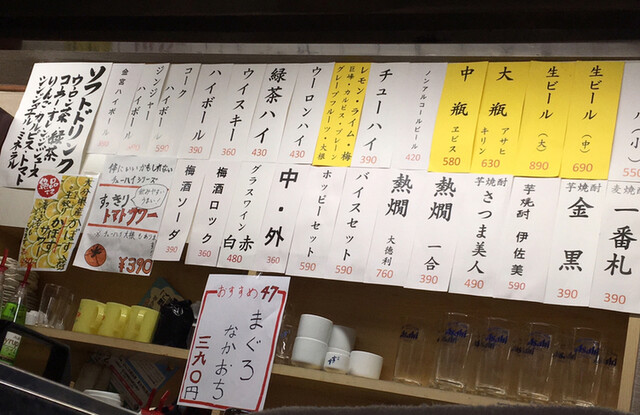 小
550
生ビール（中）
690
生ビール（大）
890
大瓶
アサヒ
キリン
630
中瓶
ヱビス
580
ノンアルコールビール
420
チューハイ
390
レモン・ライム・梅
巨峰・カルピス・プレーン
グレープフルーツ・大根
430
ウーロンハイ
430
緑茶ハイ
430
ウイスキー
360
ハイボール
390
コーク
ハイボール
ジンジャー
ハイボール
590
金宮ハイボール
ソフトドリンク
ウーロン茶
緑茶
コーラ
りんごジュース
カルピス
トマト
一番札
390
芋焼酎
金黒
390
芋焼酎
伊佐美
590
芋焼酎
さつま美人
490
熱燗
一合
390
熱燗
大徳利
760
バイスセット
590
ホッピーセット
590
中・外
グラスワイン
赤
白
480
梅酒ロック
360
梅酒ソーダ
390
体にいいかもしれない
チューハイシリーズ
飲みやすい
うまい！
すっきり
トマトサワー
¥390
おすすめ47
まぐろ
なかおち
三九〇円
Asahi
Asahi
Asahi
Asahi
Asahi